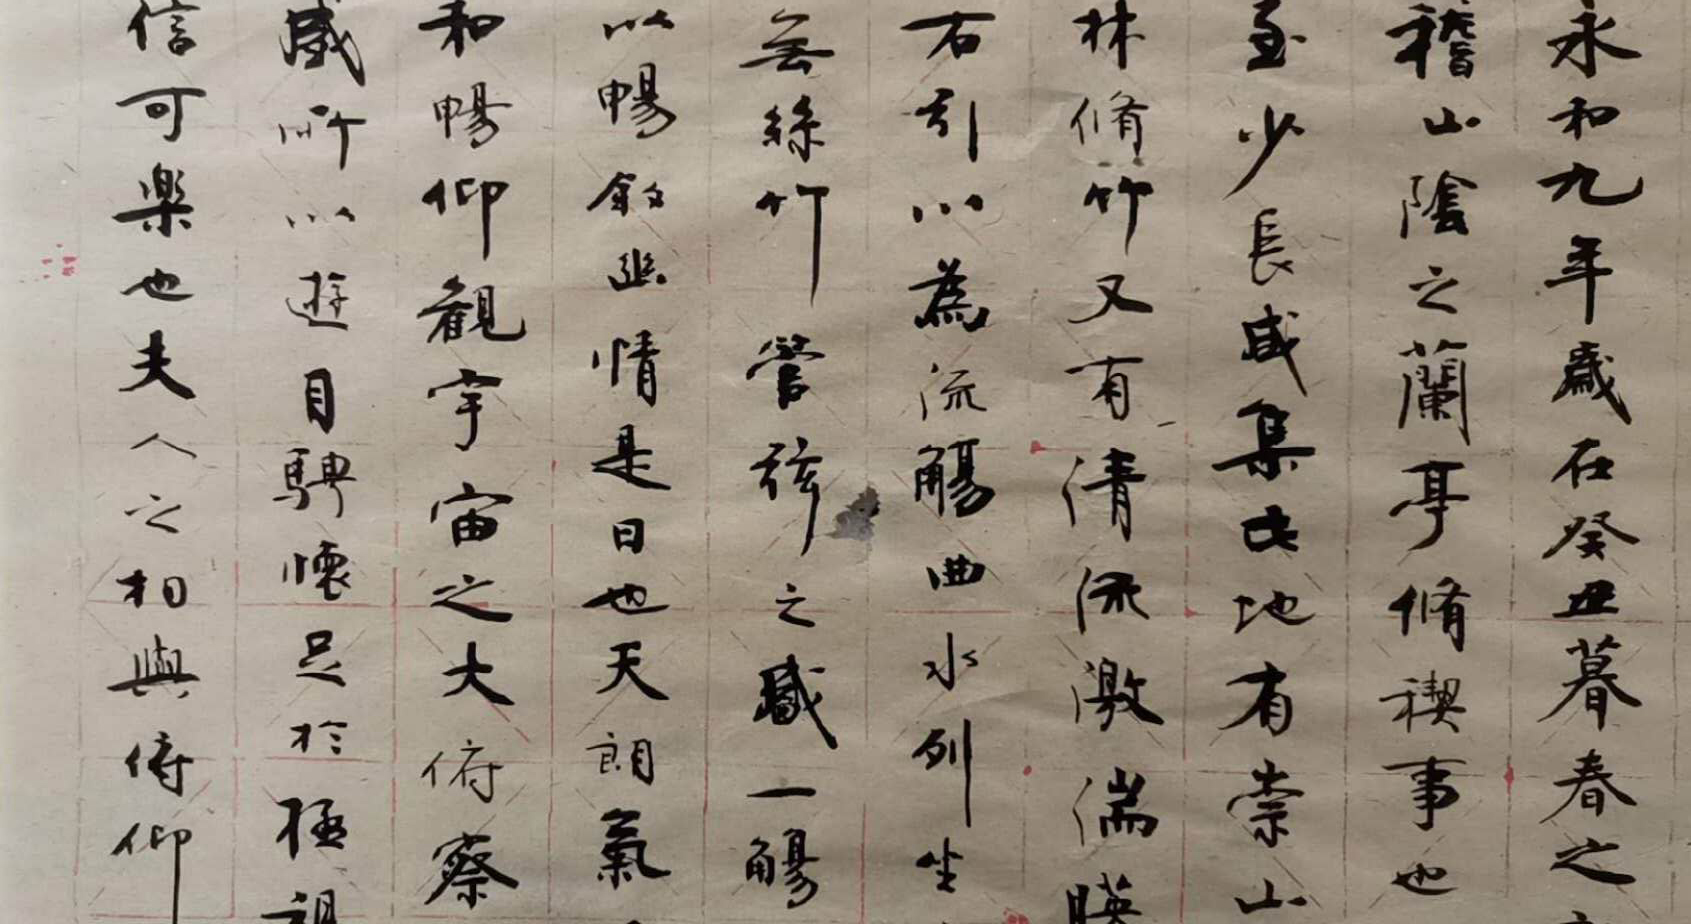 永和九年歲在癸丑暮春之
稽山陰之蘭亭脩禊事也
至少長咸集此地有崇山
林脩竹又有清流激湍暎
右引以為流觴曲水列坐
無絲竹管弦之盛一觴
以暢敘幽情是日也天朗氣
和暢仰觀宇宙之大俯察
盛所以遊目騁懷足於極視
信可樂也夫人之相與俯仰